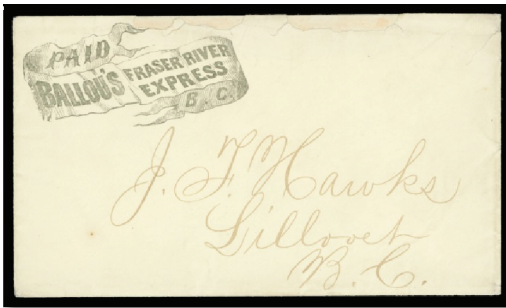 PAID
BALLOU'S FRASER RIVER EXPRESS
B.C.
J. F. Hawks
Lillooet
B. C.